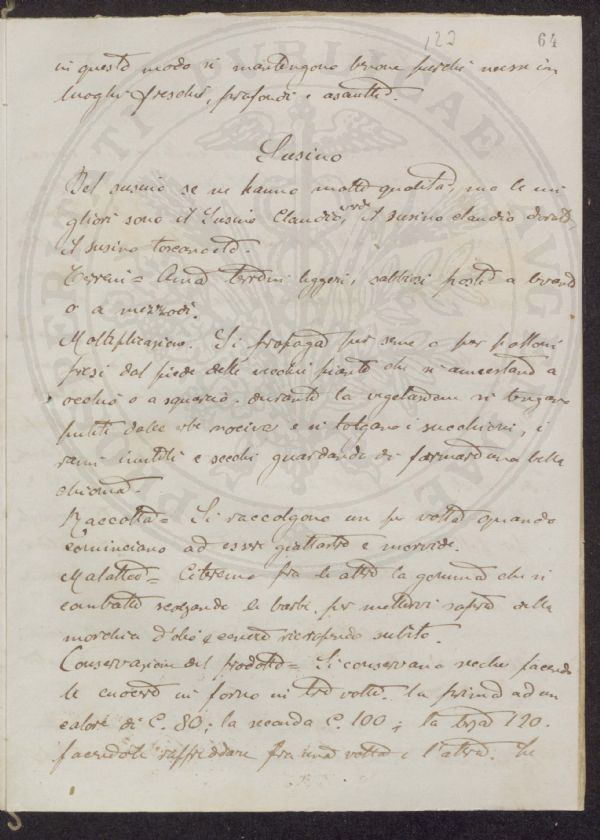 123 64
in questo modo si mantengono bene purchè messe in
luoghi freschi, profondi e asciutti.
Susino
Del susino se ne hanno molte qualità, ma le mi
gliori sono il Susino Claudio verde, il susino claudio dorato,
il susino
Terreni = Ama terreni leggeri, sabbiosi posti a levante
o a mezzodì.
Moltiplicazione. Si propaga per seme o per polloni
presi dal piede delle vecchie piante che si innestano a
occhio o a squarcio. durante la vegetazione si tengano
puliti dalle erbe nocive e si tolgano i succhioni, i
rami inutili e secchi guardando di formare una bella
chioma.
Raccolta = Si raccolgono un po' volta quando
cominciano ad essere giallastre e morvide.
Malattie = Citeremo fra le altre la gomma che si
combatte le barbe per mettervi sopra della
morchia d'olio e cenere ricoprendo subito.
Conservazione del prodotto = Si conservano secche facendo
le cuocere in forno in tre volte. la prima ad un
calore di C. 80; la seconda C. 100; la terza 120.
facendole raffreddare fra una volta e l'altra. Le